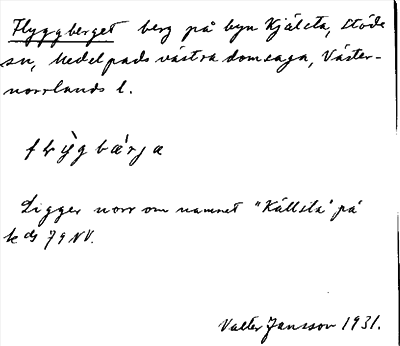 Flyggberget berg på byn Kjälsta, Stöde
sn, Medelpads västra domsaga, Väster-
norrlands l.
Ligger norr om namnet "Källsta" på
kds 79 NV.
Valter Jansson 1931.